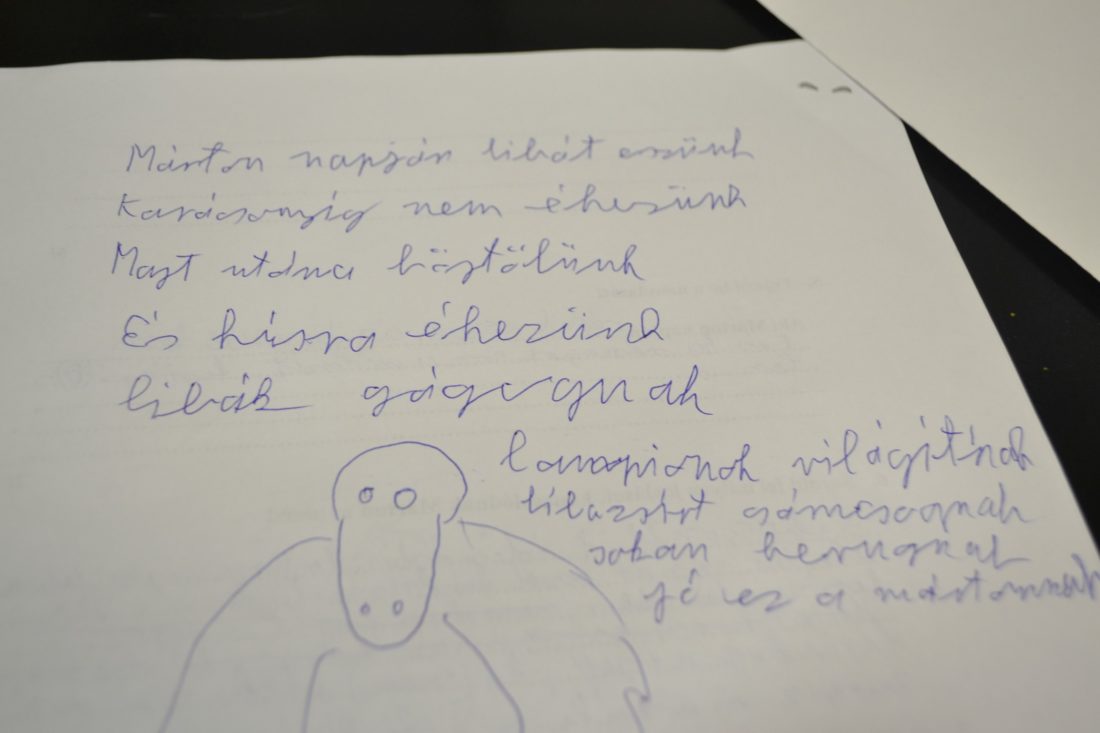 Márton napján libát eszünk
Karácsonyig nem éhezünk
Majt utána böjtölünk
És húsra éhezünk
libák gágognak
lampionok világítnak
libazsírt csámcsognak
sokan berugnak
jó ez a mártonnak